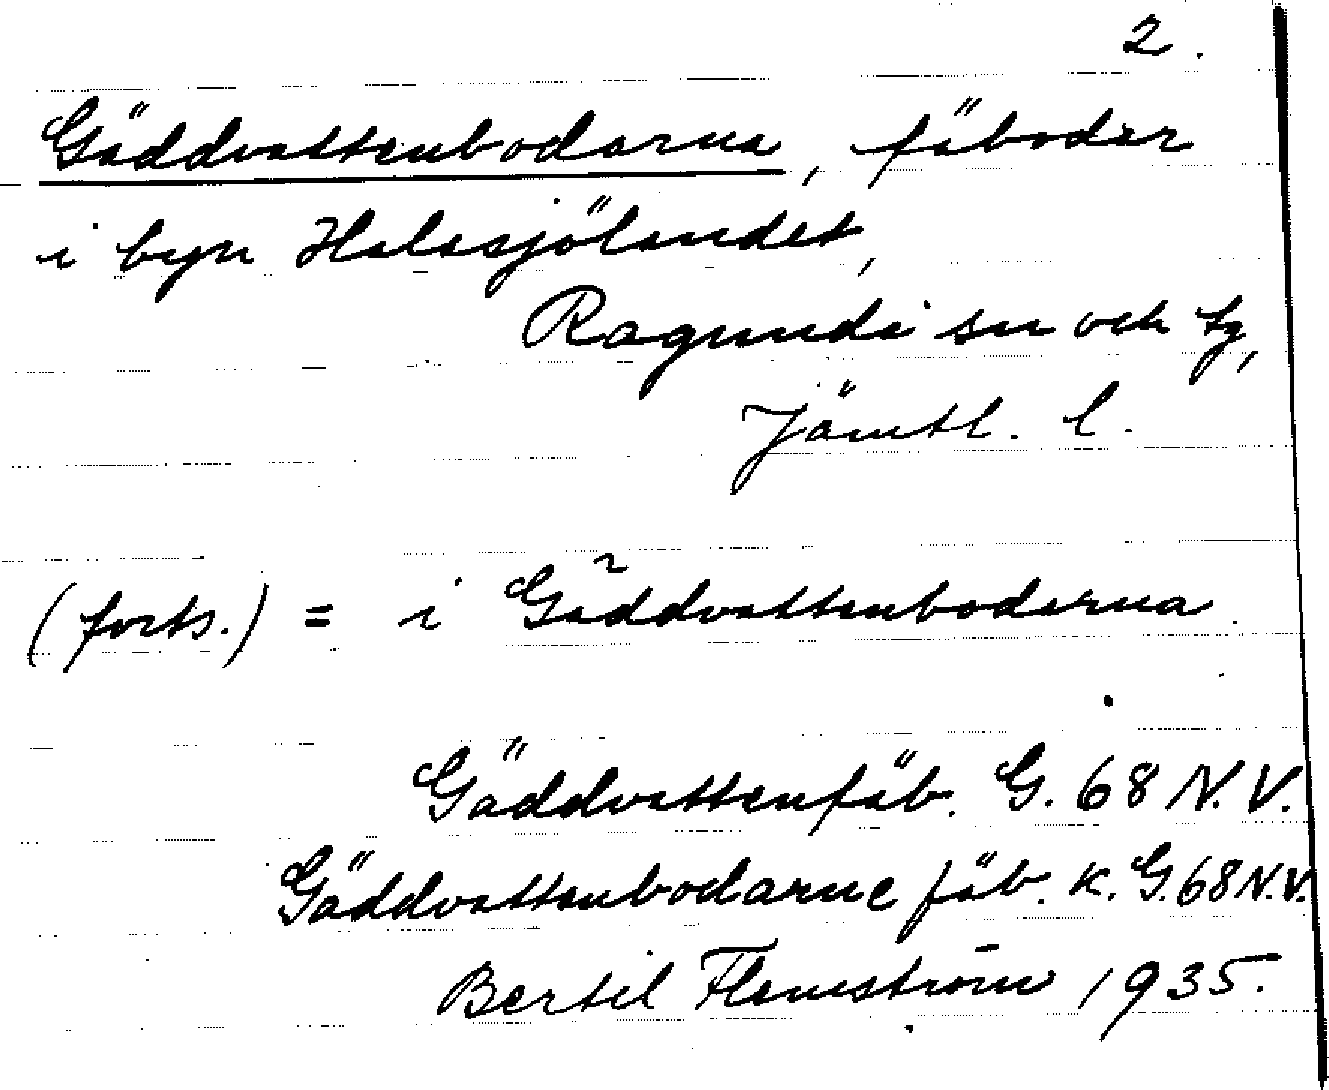 2.
Gäddvattenbodarna, fäbodar
i byn Halasjölandet,
Ragunda sn och tg,
Jämtl. l.
(forts.) = i Gäddvattenbodarna
Gäddvattenfäb. G. 68 N.V.
Gäddvattenbodarne fäb. K. G. 68 N.V.
Bertil Flemström 1935.